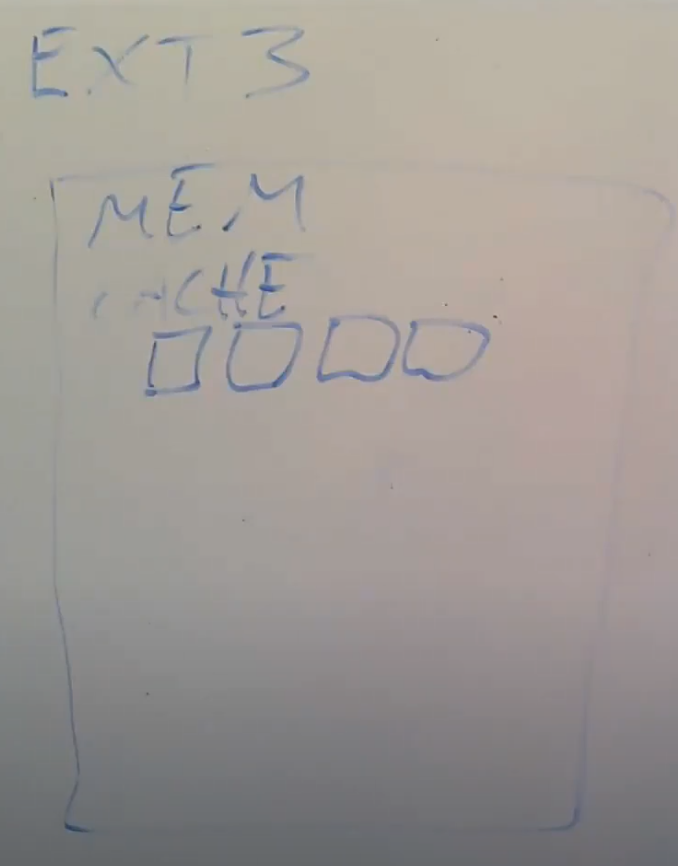 EXT3
MEM
CACHE